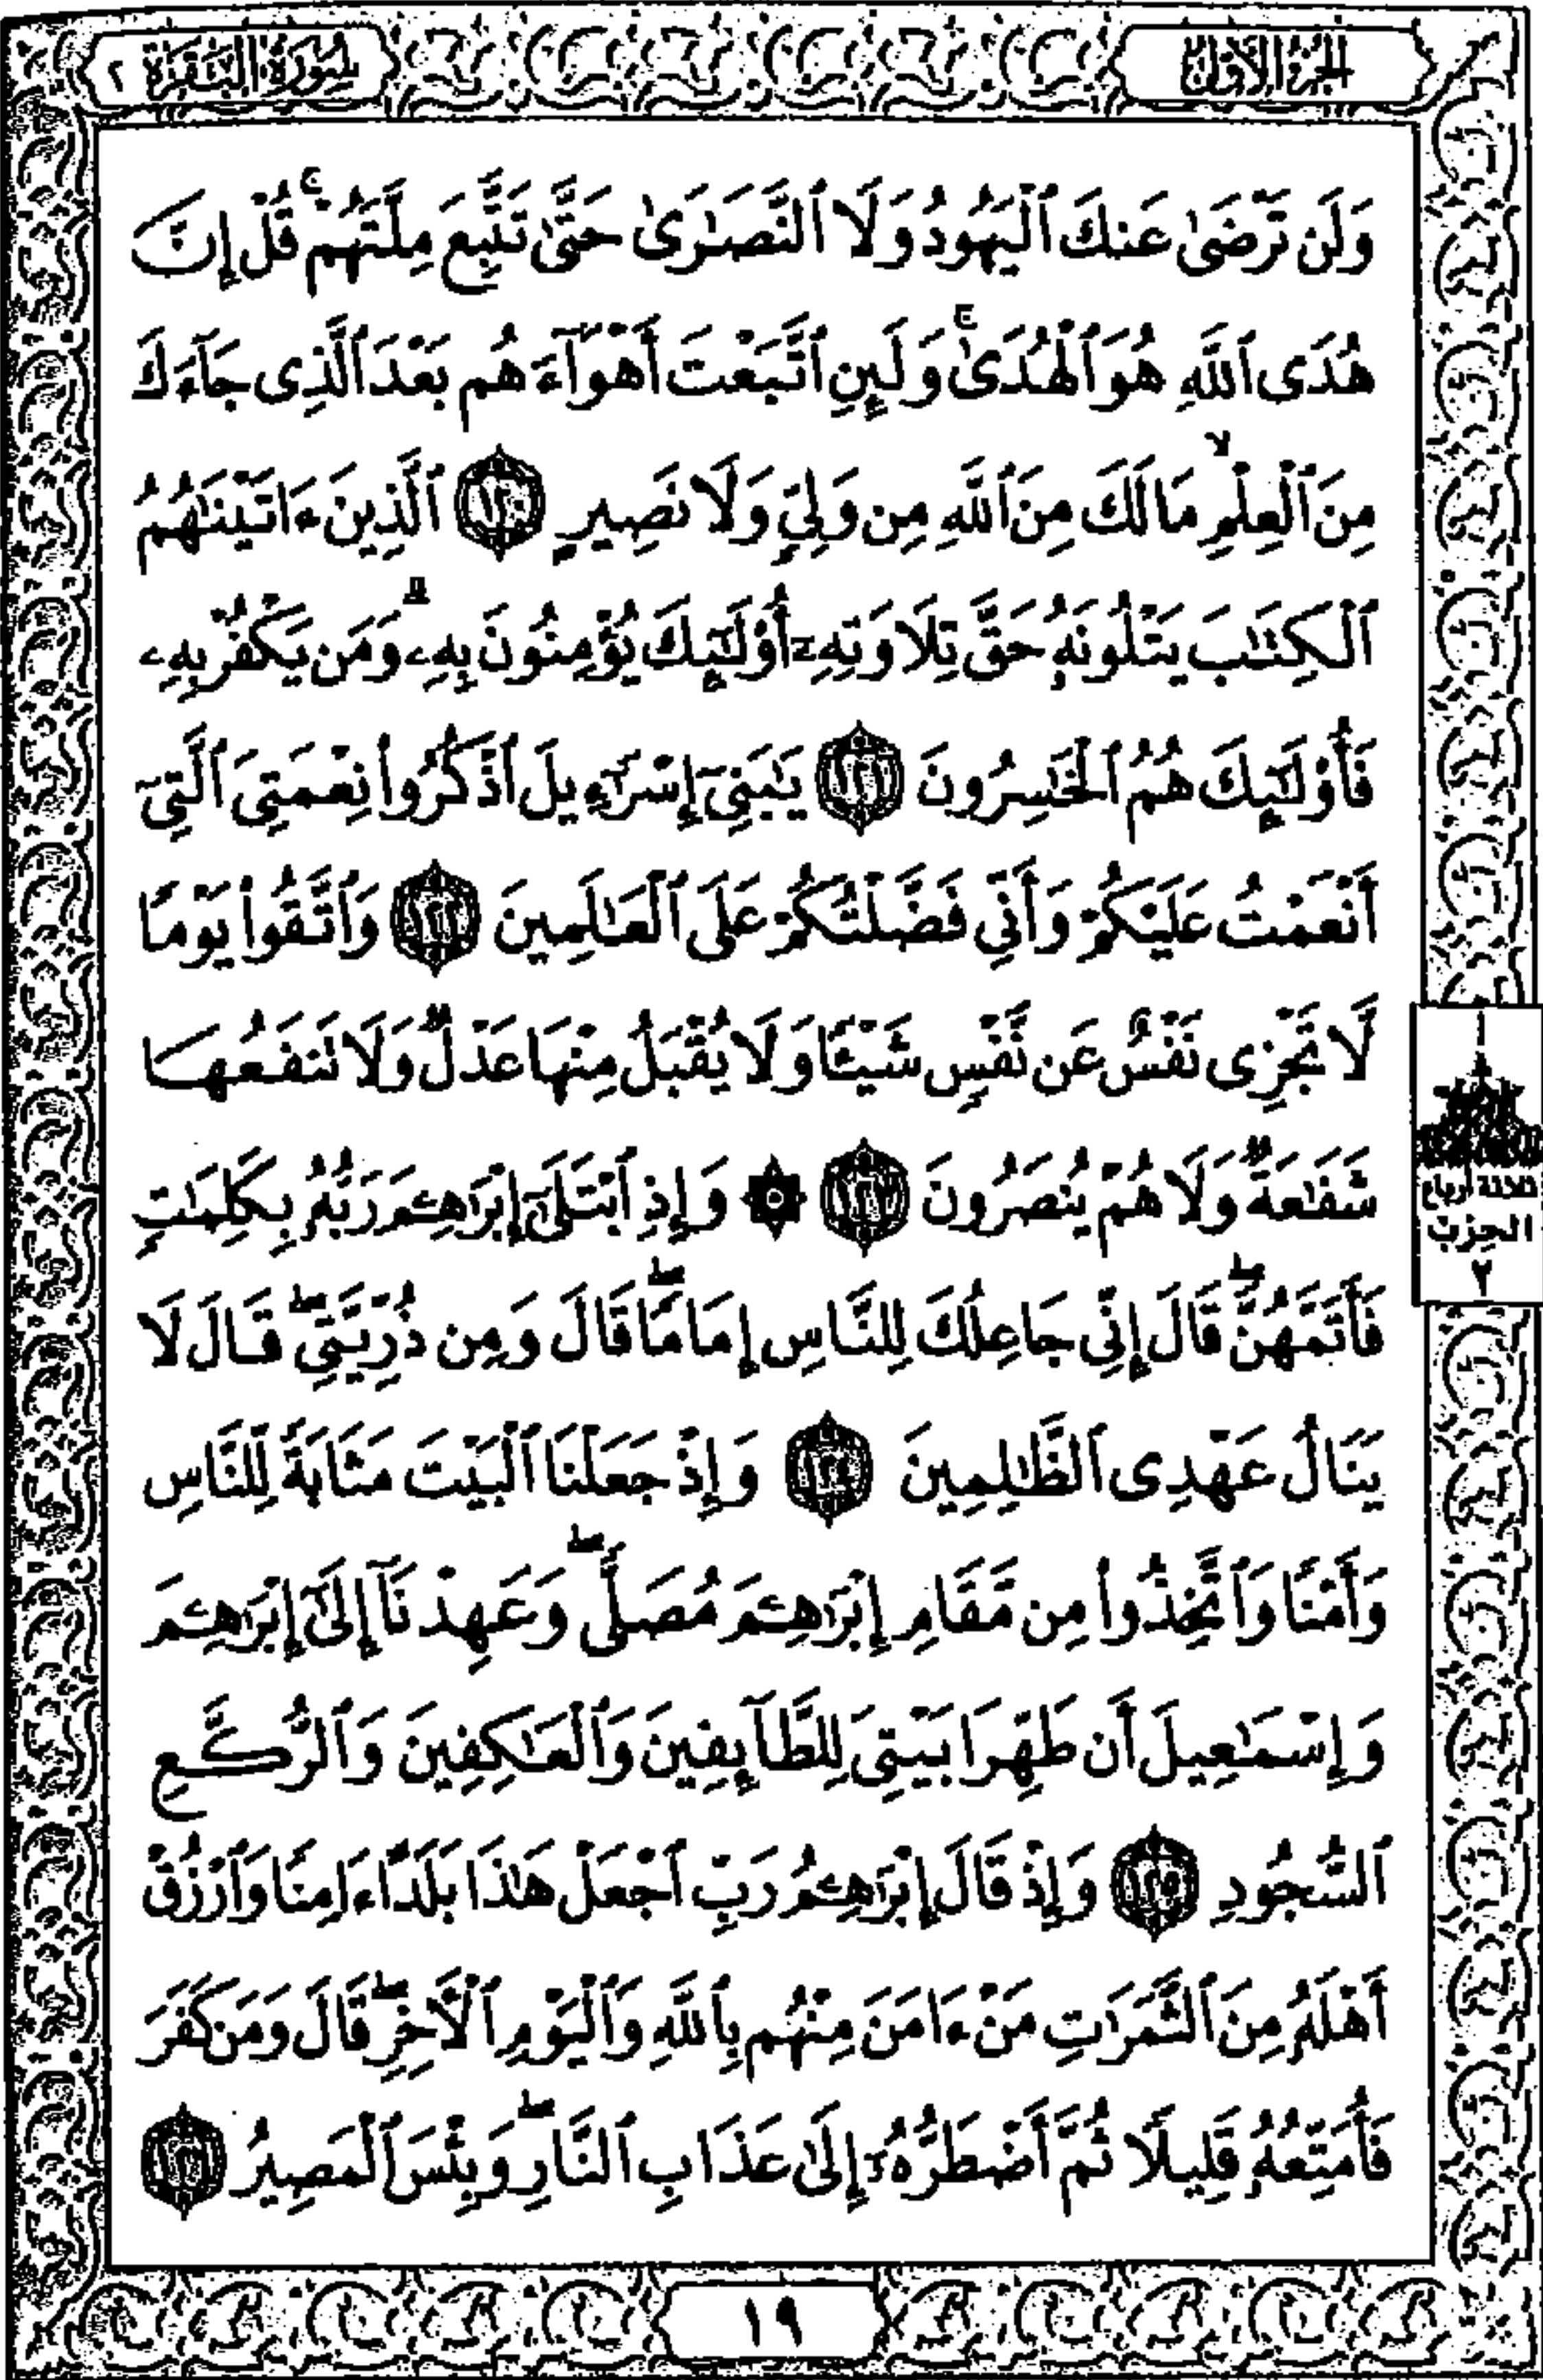 الجزء الأول
سورة البقرة ٢
وَلَن تَرْضَىٰ عَنكَ ٱلْيَهُودُ وَلَا ٱلنَّصَٰرَىٰ حَتَّىٰ تَتَّبِعَ مِلَّتَهُمْ ۗ قُلْ إِنَّ
هُدَى ٱللَّهِ هُوَ ٱلْهُدَىٰ ۗ وَلَئِنِ ٱتَّبَعْتَ أَهْوَآءَهُم بَعْدَ ٱلَّذِى جَآءَكَ
مِنَ ٱلْعِلْمِ ۙ مَا لَكَ مِنَ ٱللَّهِ مِن وَلِىٍّ وَلَا نَصِيرٍ ١٢٠ ٱلَّذِينَ ءَاتَيْنَٰهُمُ
ٱلْكِتَٰبَ يَتْلُونَهُۥ حَقَّ تِلَاوَتِهِۦٓ أُو۟لَٰٓئِكَ يُؤْمِنُونَ بِهِۦ ۗ وَمَن يَكْفُرْ بِهِۦ
فَأُو۟لَٰٓئِكَ هُمُ ٱلْخَٰسِرُونَ ١٢١ يَٰبَنِىٓ إِسْرَٰٓءِيلَ ٱذْكُرُوا۟ نِعْمَتِىَ ٱلَّتِىٓ
أَنْعَمْتُ عَلَيْكُمْ وَأَنِّى فَضَّلْتُكُمْ عَلَى ٱلْعَٰلَمِينَ ١٢٢ وَٱتَّقُوا۟ يَوْمًا
لَّا تَجْزِى نَفْسٌ عَن نَّفْسٍ شَيْـًٔا وَلَا يُقْبَلُ مِنْهَا عَدْلٌ وَلَا تَنفَعُهَا
شَفَٰعَةٌ وَلَا هُمْ يُنصَرُونَ ١٢٣ ۞ وَإِذِ ٱبْتَلَىٰٓ إِبْرَٰهِـۧمَ رَبُّهُۥ بِكَلِمَٰتٍ
فَأَتَمَّهُنَّ ۖ قَالَ إِنِّى جَاعِلُكَ لِلنَّاسِ إِمَامًا ۖ قَالَ وَمِن ذُرِّيَّتِى ۖ قَالَ لَا
يَنَالُ عَهْدِى ٱلظَّٰلِمِينَ ١٢٤ وَإِذْ جَعَلْنَا ٱلْبَيْتَ مَثَابَةً لِّلنَّاسِ
وَأَمْنًا وَٱتَّخِذُوا۟ مِن مَّقَامِ إِبْرَٰهِـۧمَ مُصَلًّى ۖ وَعَهِدْنَآ إِلَىٰٓ إِبْرَٰهِـۧمَ
وَإِسْمَٰعِيلَ أَن طَهِّرَا بَيْتِىَ لِلطَّآئِفِينَ وَٱلْعَٰكِفِينَ وَٱلرُّكَّعِ
ٱلسُّجُودِ ١٢٥ وَإِذْ قَالَ إِبْرَٰهِـۧمُ رَبِّ ٱجْعَلْ هَٰذَا بَلَدًا ءَامِنًا وَٱرْزُقْ
أَهْلَهُۥ مِنَ ٱلثَّمَرَٰتِ مَنْ ءَامَنَ مِنْهُم بِٱللَّهِ وَٱلْيَوْمِ ٱلْءَاخِرِ ۖ قَالَ وَمَن كَفَرَ
فَأُمَتِّعُهُۥ قَلِيلًا ثُمَّ أَضْطَرُّهُۥٓ إِلَىٰ عَذَابِ ٱلنَّارِ ۖ وَبِئْسَ ٱلْمَصِيرُ ١٢٦
ثلاثة أرباع
الحزب
٢
١٩